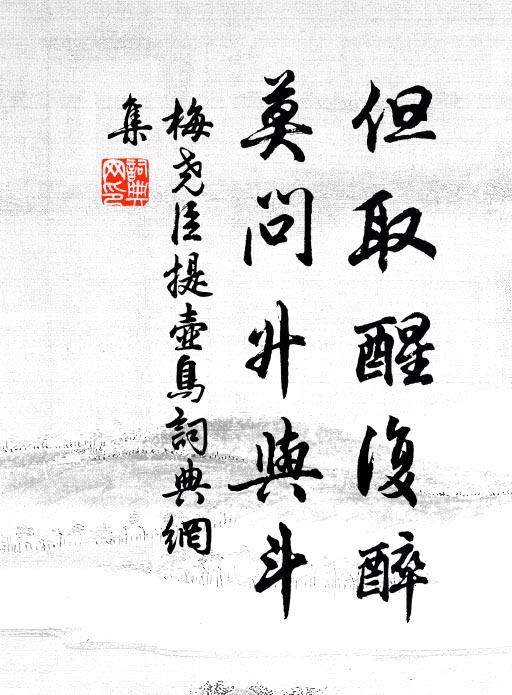 但取醒復醉
莫問升與斗
梅尧臣提壺鳥詞典網
集
詞典
网印